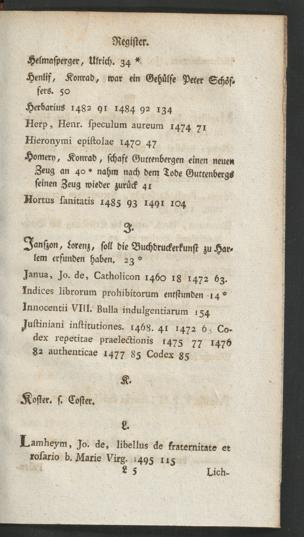 Register.
Helmasperger, Ulrich. 34 *
Henlif, Konrad, war ein Gehülfe Peter Schöf-
fers. 50
Herbarius 1482 91 1484 92 134
Herp, Henr. speculum aureum 1474 71
Hieronymi epistolae 1470 47
Homery, Konrad, schaft Guttenbergen einen neuen
Zeug an 40 * nahm nach dem Tode Guttenbergs
seinen Zeug wieder zurück 41
Hortus sanitatis 1485 93 1491 104
J.
Janszon, Lorenz, soll die Buchdruckerkunst zu Har-
lem erfunden haben. 23 *
Janua, Jo. de, Catholicon 1460 18 1472 63.
Indices librorum prohibitorum entstunden 14 *
Innocentii VIII. Bulla indulgentiarum 154
Justiniani institutiones. 1468. 41 1472 Co-
dex repetitae praelectionis 1475 77 1476
82 authenticae 1477 85 Codex 85
K.
Koster. s. Coster.
L.
Lamheym, Jo. de, libellus de fraternitate et
rosario b. Marie Virg. 1495 115
L 5 Lich-